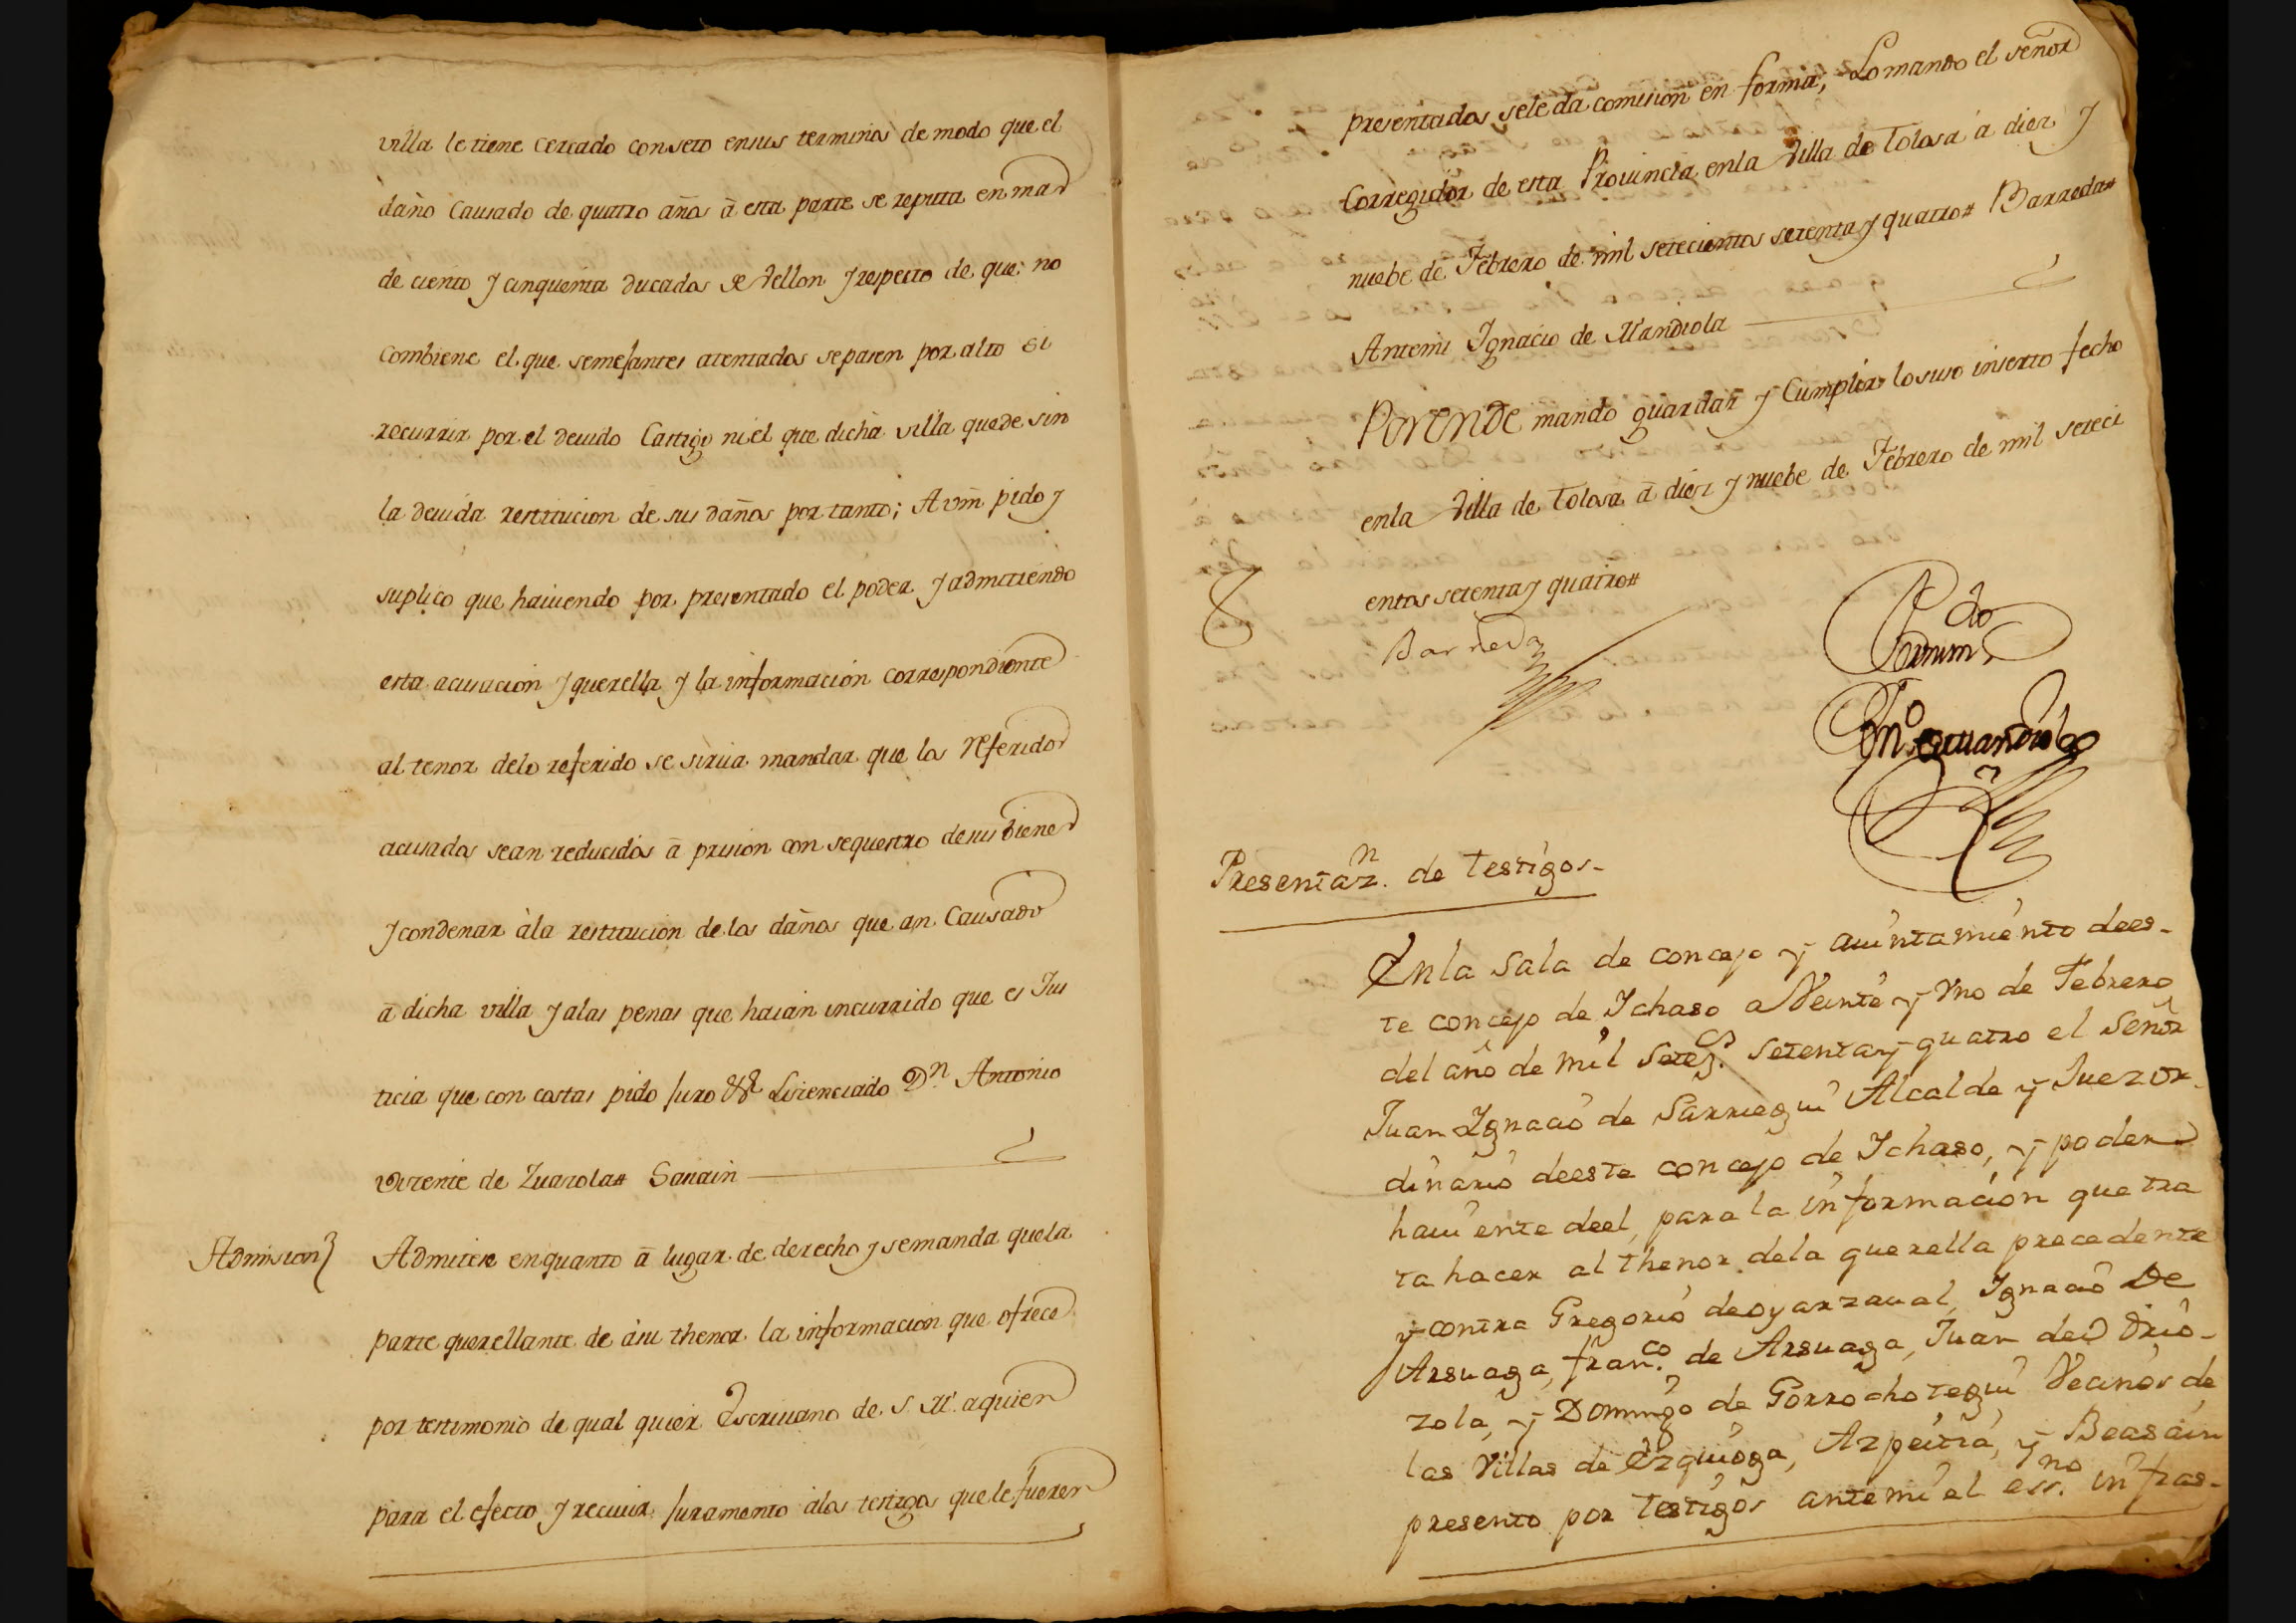 villa le tiene cercado con seto ensus terminos de modo que el
daño Causado de quatro años â esta parte se reputa en mas
de ciento y cinquenta ducados de vellon y respecto de que no
combiene el que semejantes atentados se pasen por alto si
recurrir por el deuido Castigo ni el que dicha villa quede sin
la deuida restitucion de sus daños por tanto; A vm̃ pido y
suplico que hauiendo por presentado el poder y admitiendo
esta acusacion y querella y la informacion correspondiente
al tenor delo referido se sirua mandar que los referidos
acusados sean reducidos â prision con sequestro desus bienes
y condenar âla restitucion de los daños que an Causado
â dicha villa y alas penas que haian incurrido que es Jus
ticia que con costas pido juro &ª Lizenciado Dn. Antonio
Vizente de Zuazola# Sarain
Admision} Admitese enquanto â lugar de derecho y semanda quela
parte querellante de âsu thenor la informacion que ofrece
por testimonio de qual quier Escriuano de S. M. aquien
para el efecto y reciuir juramento âlos testigos quele fueren
presentados sele da comision en forma; Lo mando el señor
Corregidor de esta Prouincia enla Villa de Tolosa â diez y
nuebe de Febrero de mil setecientos setenta y quatro# Barreda#
Antemi Ignacio de Mandiola
POR ENDE mando guardar y Cumplir lo suso inserto fecho
enla Villa de Tolosa â diez y nuebe de Febrero de mil seteci
entos setenta y quatro#
Barreda
Presentazn. de Testigos-
En la sala de concejo y aiuntamiento dees-
te concejo de Ichaso a Veinte y Vno de Febrero
del año de mil setezs. setenta y quatro el señor
Juan Ignacio de Sarriegui Alcalde y Juez or-
dinario deeste concejo de Ichaso, y poder
hauiente deel, para la informacion que tra
ta hacer al thenor dela querella precedente
y contra Gregorio deoyarzaual, Ignacio De
Arsuaga, franco. de Arsuaga, Juan de Odrio-
zola, y Domingo de Gorrochotegui Vecinos de
las Villas de Ezquioga, Azpeitia, y Beasain
presento por testigos antemi el essno. infras-